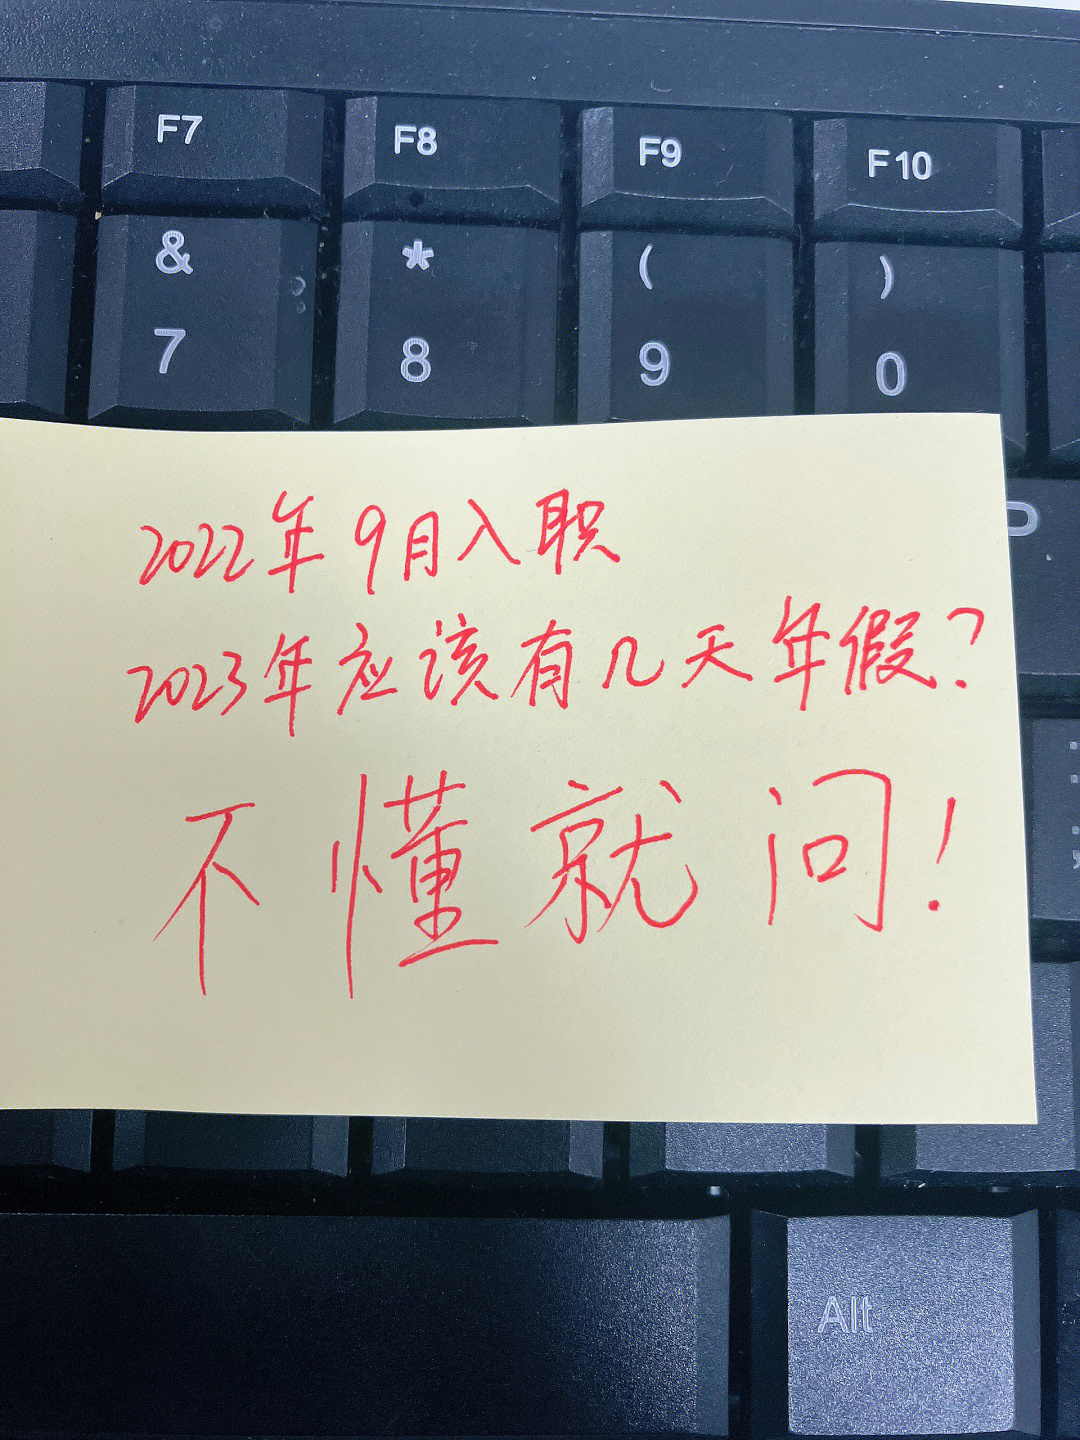 F7 F8 F9 F10
& * ( )
7 8 9 0
2022年9月入职
P
2023年应该有几天年假?
不懂就问!
Alt